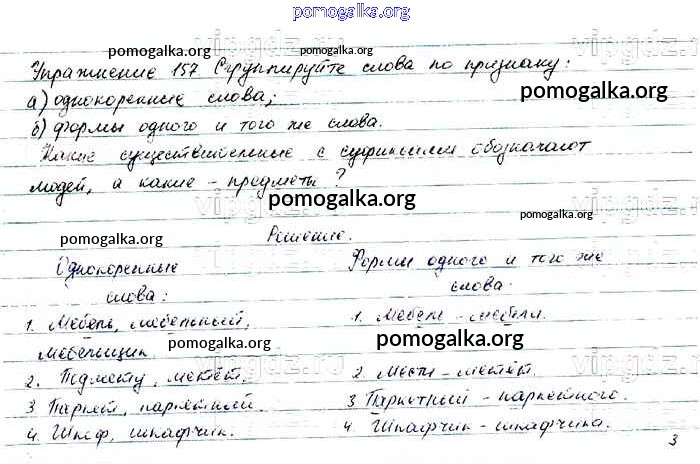 pomogalka.org
pomogalka.org
pomogalka.org
Упражнение 157 Сгруппируйте слова по признаку:
pomogalka.org
а) однокоренные слова;
б) формы одного и того же слова.
pomogalka.org
Какие существительные с суффиксами обозначают
людей, а какие – предметы?
pomogalka.org
Решение.
pomogalka.org
pomogalka.org
Однокоренные Формы одного и того же
слова: слова.
1. Мебель, мебельный, 1. Мебель – мебели.
мебельщик.
pomogalka.org
pomogalka.org
2. Подмету, метёт. 2. Мести – метёт.
3 Паркет, паркетный. 3 Паркетный – паркетного.
pomogalka.org
4. Шкаф, шкафчик. 4. Шкафчик – шкафчика.
pomogalka.org
3